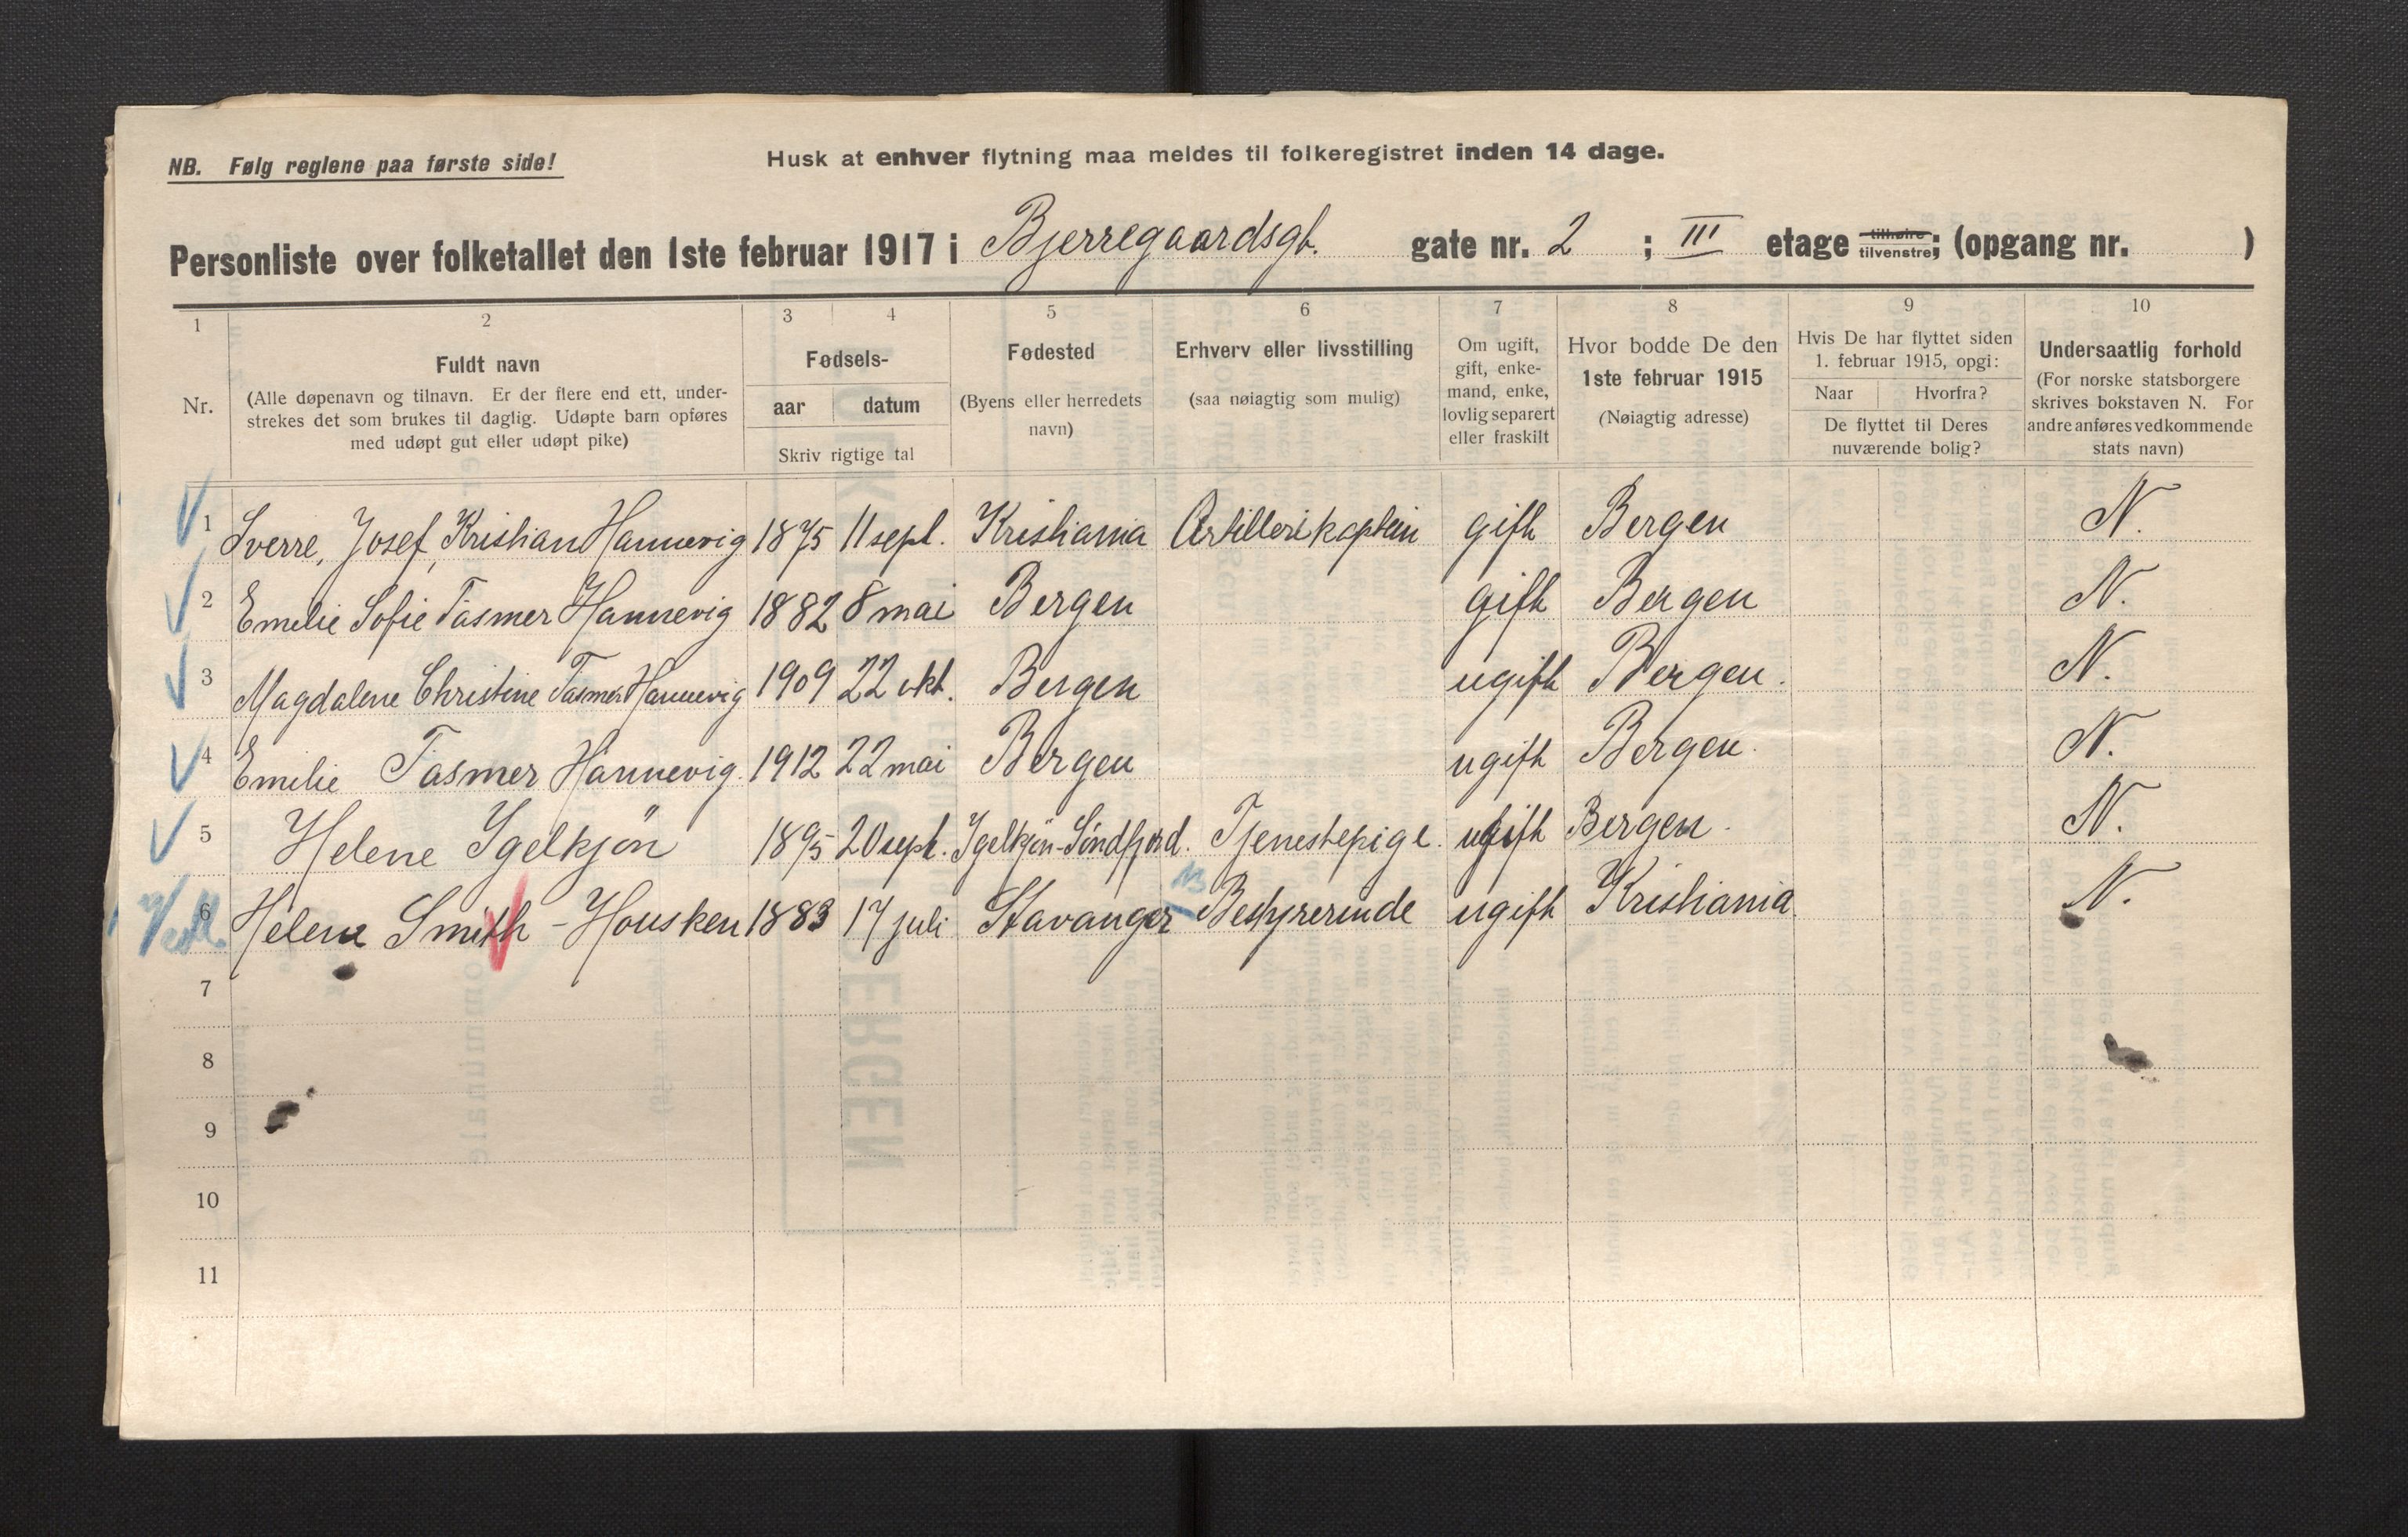 NB. Følg reglene paa første side!
Husk at enhver flytning maa meldes til folkeregistret inden 14 dage.
Personliste over folketallet den 1ste februar 1917 i Bjerregaardsgt. gate nr. 2 ; III etage tilhøire tilvenstre; (opgang nr. )
1 2 3 4 5 6 7 8 9 10
Nr.
Fuldt navn
(Alle døpenavn og tilnavn. Er der flere end ett, under-
strekes det som brukes til daglig. Udøpte barn opføres
med udøpt gut eller udøpt pike)
Fødsels-
aar datum
Skriv rigtige tal
Fødested
(Byens eller herredets
navn)
Erhverv eller livsstilling
(saa nøiagtig som mulig)
Om ugift,
gift, enke-
mand, enke,
lovlig separert
eller fraskilt
Hvor bodde De den
1ste februar 1915
(Nøiagtig adresse)
Hvis De har flyttet siden
1. februar 1915, opgi:
Naar Hvorfra?
De flyttet til Deres
nuværende bolig?
Undersaatlig forhold
(For norske statsborgere
skrives bokstaven N. For
andre anføres vedkommende
stats navn)
1 Sverre, Josef, Kristian Hannevig 1875 11 sept. Kristiania Artillerikaptein gift Bergen N.
2 Emelie Sofie Tasmer Hannevig 1882 8 mai Bergen gift Bergen N.
3 Magdalene Christine Tasmer Hannevig 1909 22 okt. Bergen ugift Bergen. N.
4 Emilie Tasmer Hannevig. 1912 22 mai Bergen ugift Bergen. N.
5 Helene Igelkjön 1895 20 sept. Igelkjön-Söndfjord. Tjenestepige. ugift Bergen. N.
6 Helene Smith-Housken 1883 17 juli Stavanger Bestyrerinde ugift Kristiania N.
7
8
9
10
11